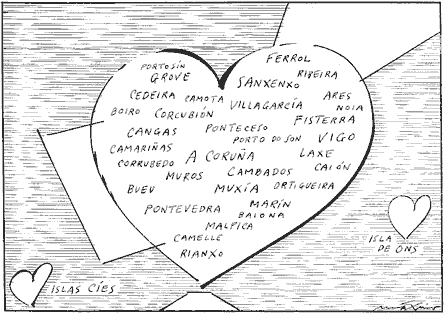 PORTOSÍN
FERROL
GROVE
RIBEIRA
SANXENXO
CEDEIRA
CAMOTA
ARES
VILLAGARCÍA
NOIA
BOIRO
CORCUBIÓN
FISTERRA
CANGAS
PONTECESO
PORTO DO SON
VIGO
CAMARIÑAS
A CORUÑA
LAXE
CORRUBEDO
CAIÓN
MUROS
CAMBADOS
BUEU
MUXÍA
ORTIGUEIRA
PONTEVEDRA
MARÍN
BAIONA
MALPICA
CAMELLE
RIANXO
ISLA
DE ONS
ISLAS CÍES